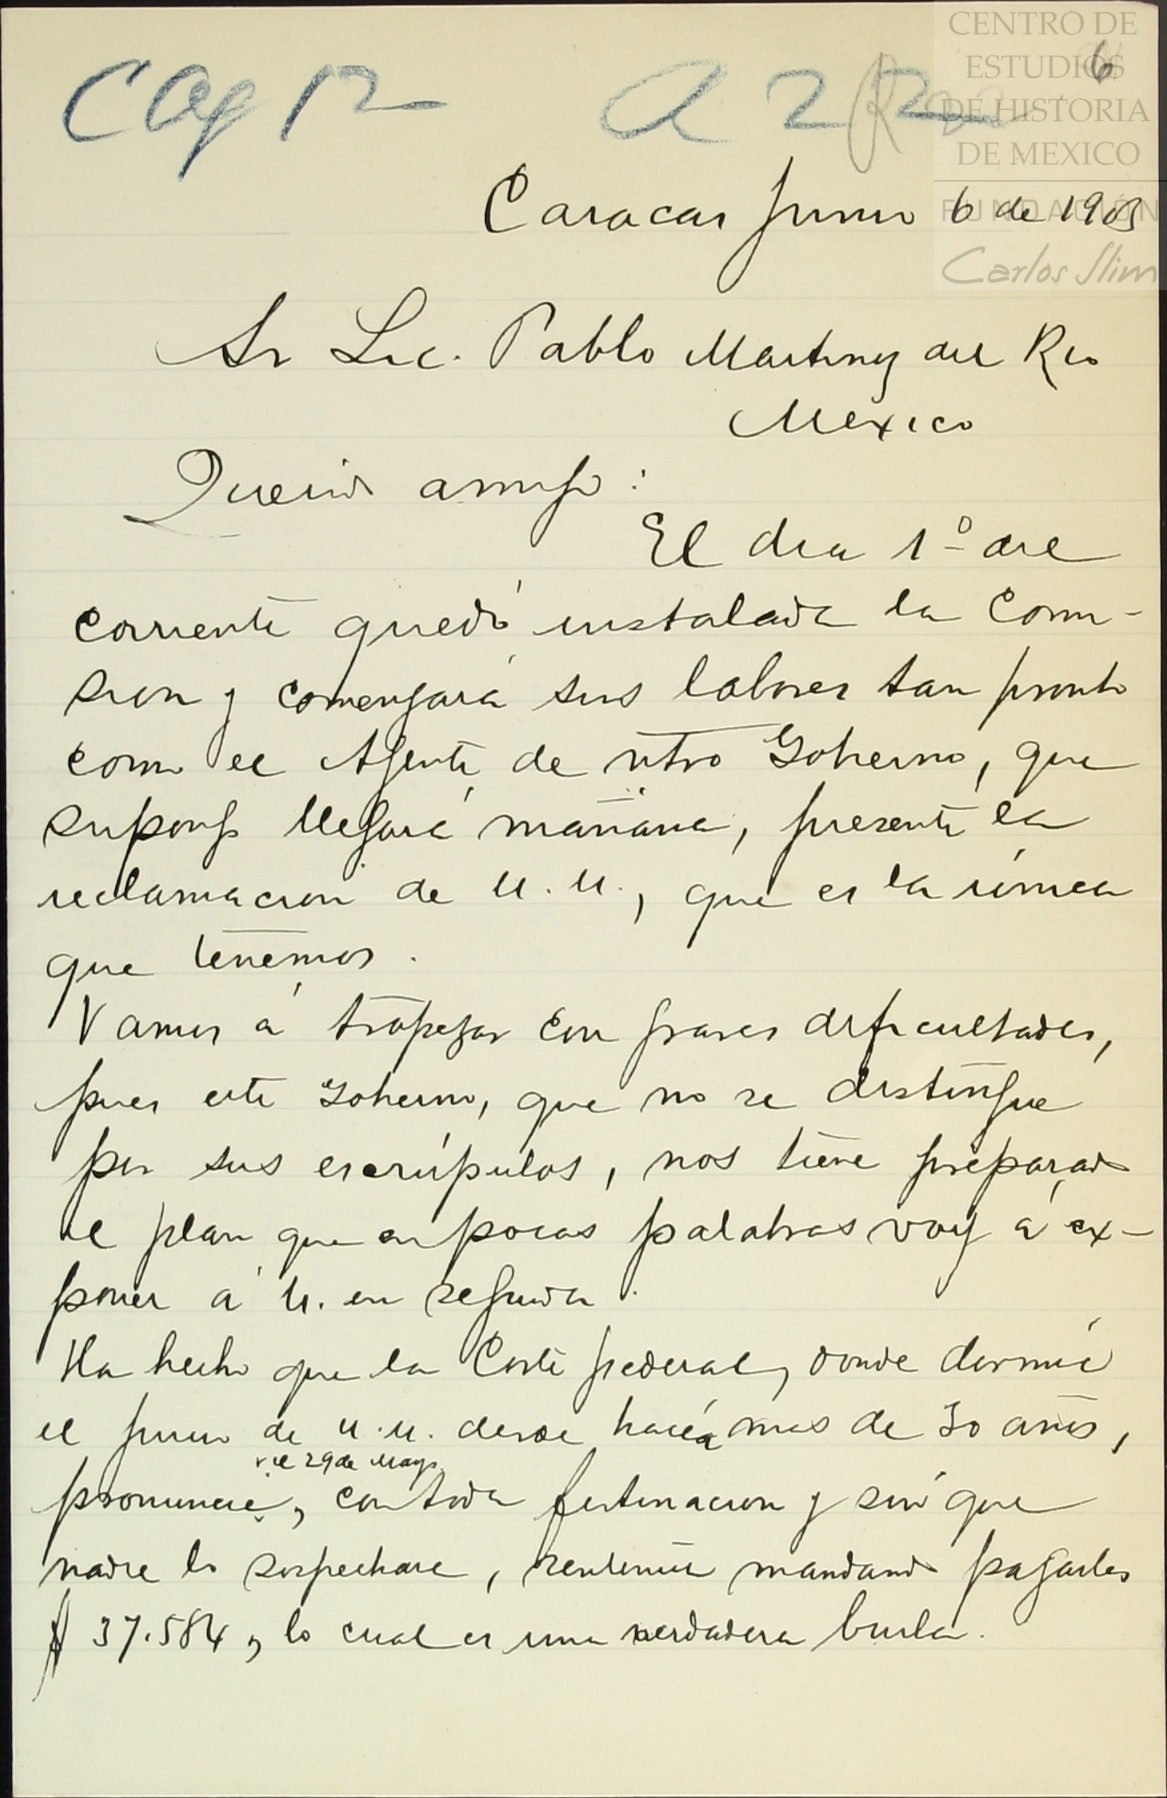 CENTRO DE
ESTUDIOS
DE HISTORIA
DE MEXICO
FUNDACIÓN
Carlos Slim
6
Caracas Junio 6 de 1903
Sr Lic. Pablo Martinez del Rio
Mexico
Querido amigo:
El dia 1º del
corriente quedó instalada la Comi-
sion y comenzará sus labores tan pronto
como el Agente de ntro Gobierno, que
supongo llegará mañana, presente la
reclamacion de U. U., que es la única
que tenemos.
Vamos á tropezar con graves dificultades,
pues este Gobierno, que no se distingue
por sus escrúpulos, nos tiene preparado
el plan que en pocas palabras voy á ex-
poner á U. en seguida.
Ha hecho que la Corte federal, donde dormía
el juicio de U. U. desde hacía mas de 30 años,
el 29 de Mayo
pronuncie, con toda festinacion y sin que
nadie lo sospechara, sentencia mandando pagarles
$ 37.584, lo cual es una verdadera burla.